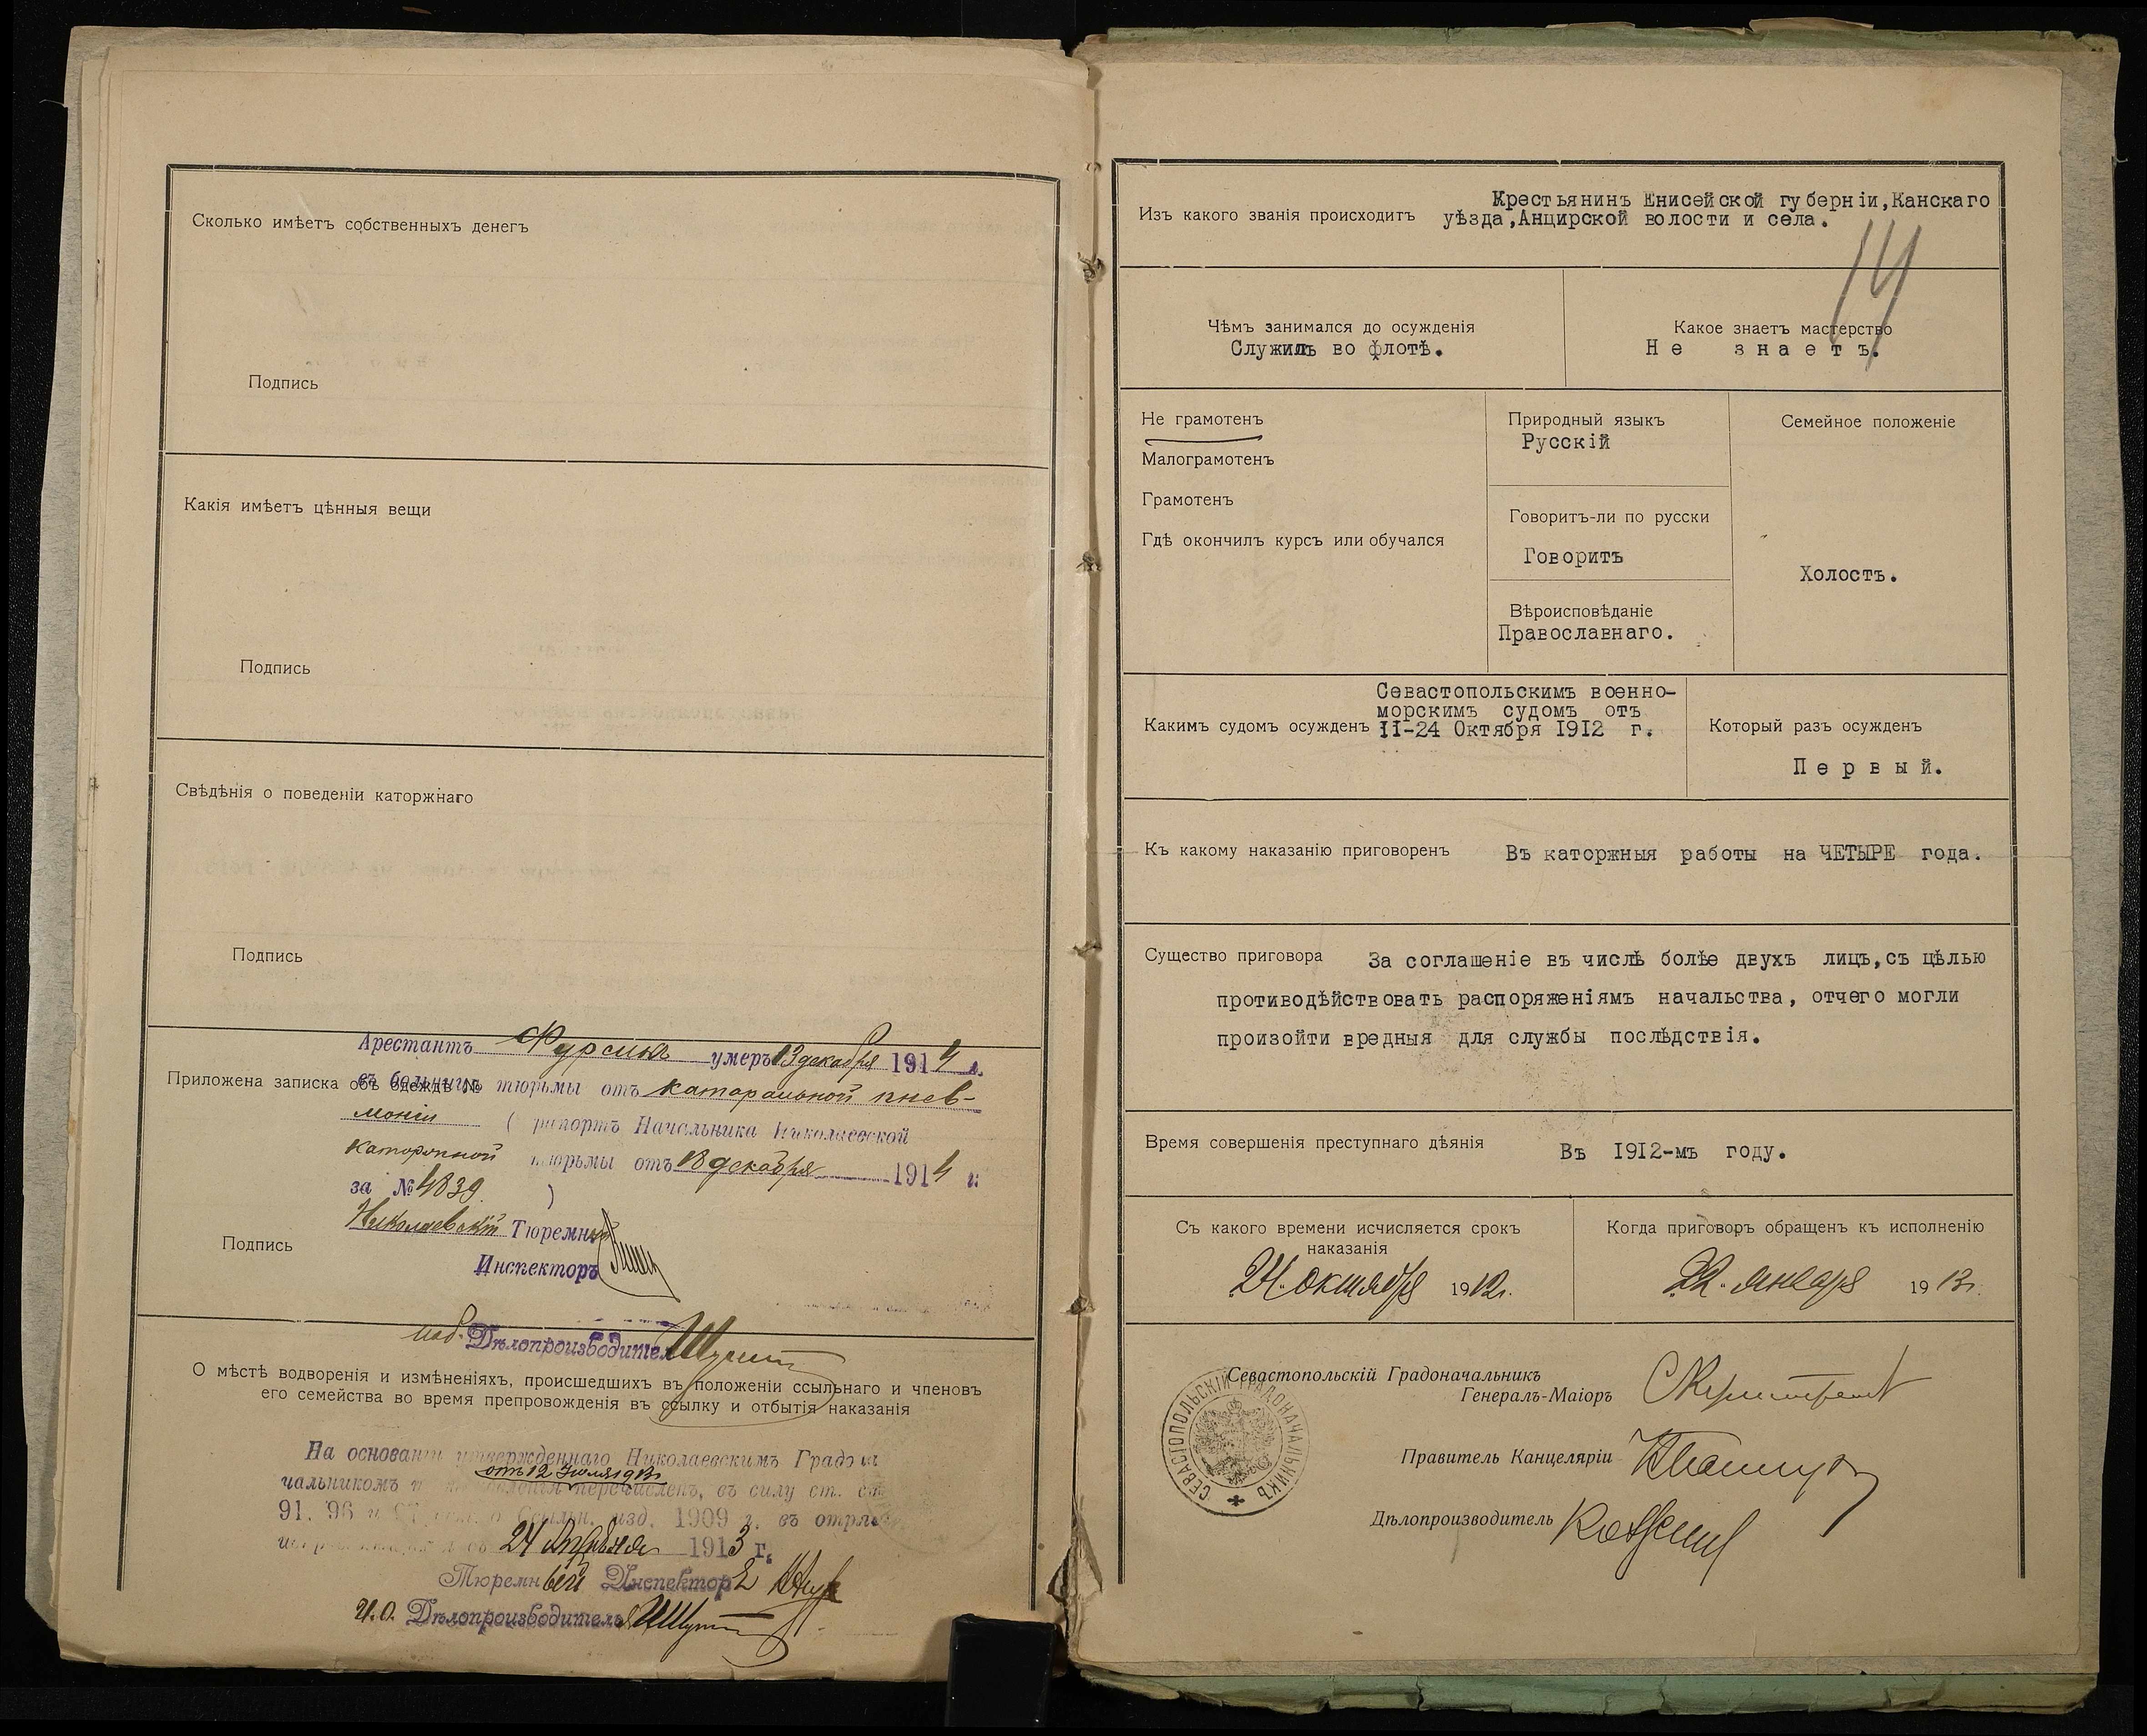 Сколько имѣетъ собственныхъ денегъ
Подпись
Какія имѣетъ цѣнныя вещи
Подпись
Свѣдѣнія о поведеніи каторжнаго
Подпись
Арестантъ Фурсинъ умеръ 13 декабря 1914 г.
Приложена записка объ одеждѣ №
въ больницѣ тюрьмы отъ катаральной пнев-
моніи ( рапортъ Начальника Николаевской
каторжной тюрьмы отъ 18 декабря 1914 г.
за № 4839 )
Николаевскій Тюремный
Подпись
Инспекторъ
Дѣлопроизводитель
О мѣстѣ водворенія и измѣненіяхъ, происшедшихъ въ положеніи ссыльнаго и членовъ
его семейства во время препровожденія въ ссылку и отбытія наказанія
На основаніи утвержденнаго Николаевскимъ Градона
отъ 12 Іюля 1913 г.
чальникомъ перечисленъ, въ силу ст. ст.
91, 96 и Ссыльн. изд. 1909 г. въ отряд
24 Апрѣля 1913 г.
Тюремный Инспекторъ
И.О. Дѣлопроизводителя
Изъ какого званія происходитъ Крестьянинъ Енисейской губерніи, Канскаго
уѣзда, Анцирской волости и села.
14
Чѣмъ занимался до осужденія
Служилъ во флотѣ.
Какое знаетъ мастерство
Не знаетъ.
Не грамотенъ
Малограмотенъ
Грамотенъ
Гдѣ окончилъ курсъ или обучался
Природный языкъ
Русскій
Говоритъ-ли по русски
Говоритъ
Вѣроисповѣданіе
Православнаго.
Семейное положеніе
Холостъ.
Севастопольскимъ военно-
морскимъ судомъ отъ
Какимъ судомъ осужденъ 11-24 Октября 1912 г.
Который разъ осужденъ
Первый.
Къ какому наказанію приговоренъ Въ каторжныя работы на ЧЕТЫРЕ года.
Существо приговора За соглашеніе въ числѣ болѣе двухъ лицъ, съ цѣлью
противодѣйствовать распоряженіямъ начальства, отчего могли
произойти вредныя для службы послѣдствія.
Время совершенія преступнаго дѣянія Въ 1912-мъ году.
Съ какого времени исчисляется срокъ
наказанія
24 октября 1912 г.
Когда приговоръ обращенъ къ исполненію
22 января 1913 г.
Севастопольскій Градоначальникъ
Генералъ-Маіоръ
Правитель Канцеляріи
Дѣлопроизводитель
СЕВАСТОПОЛЬСКІЙ ГРАДОНАЧАЛЬНИКЪ